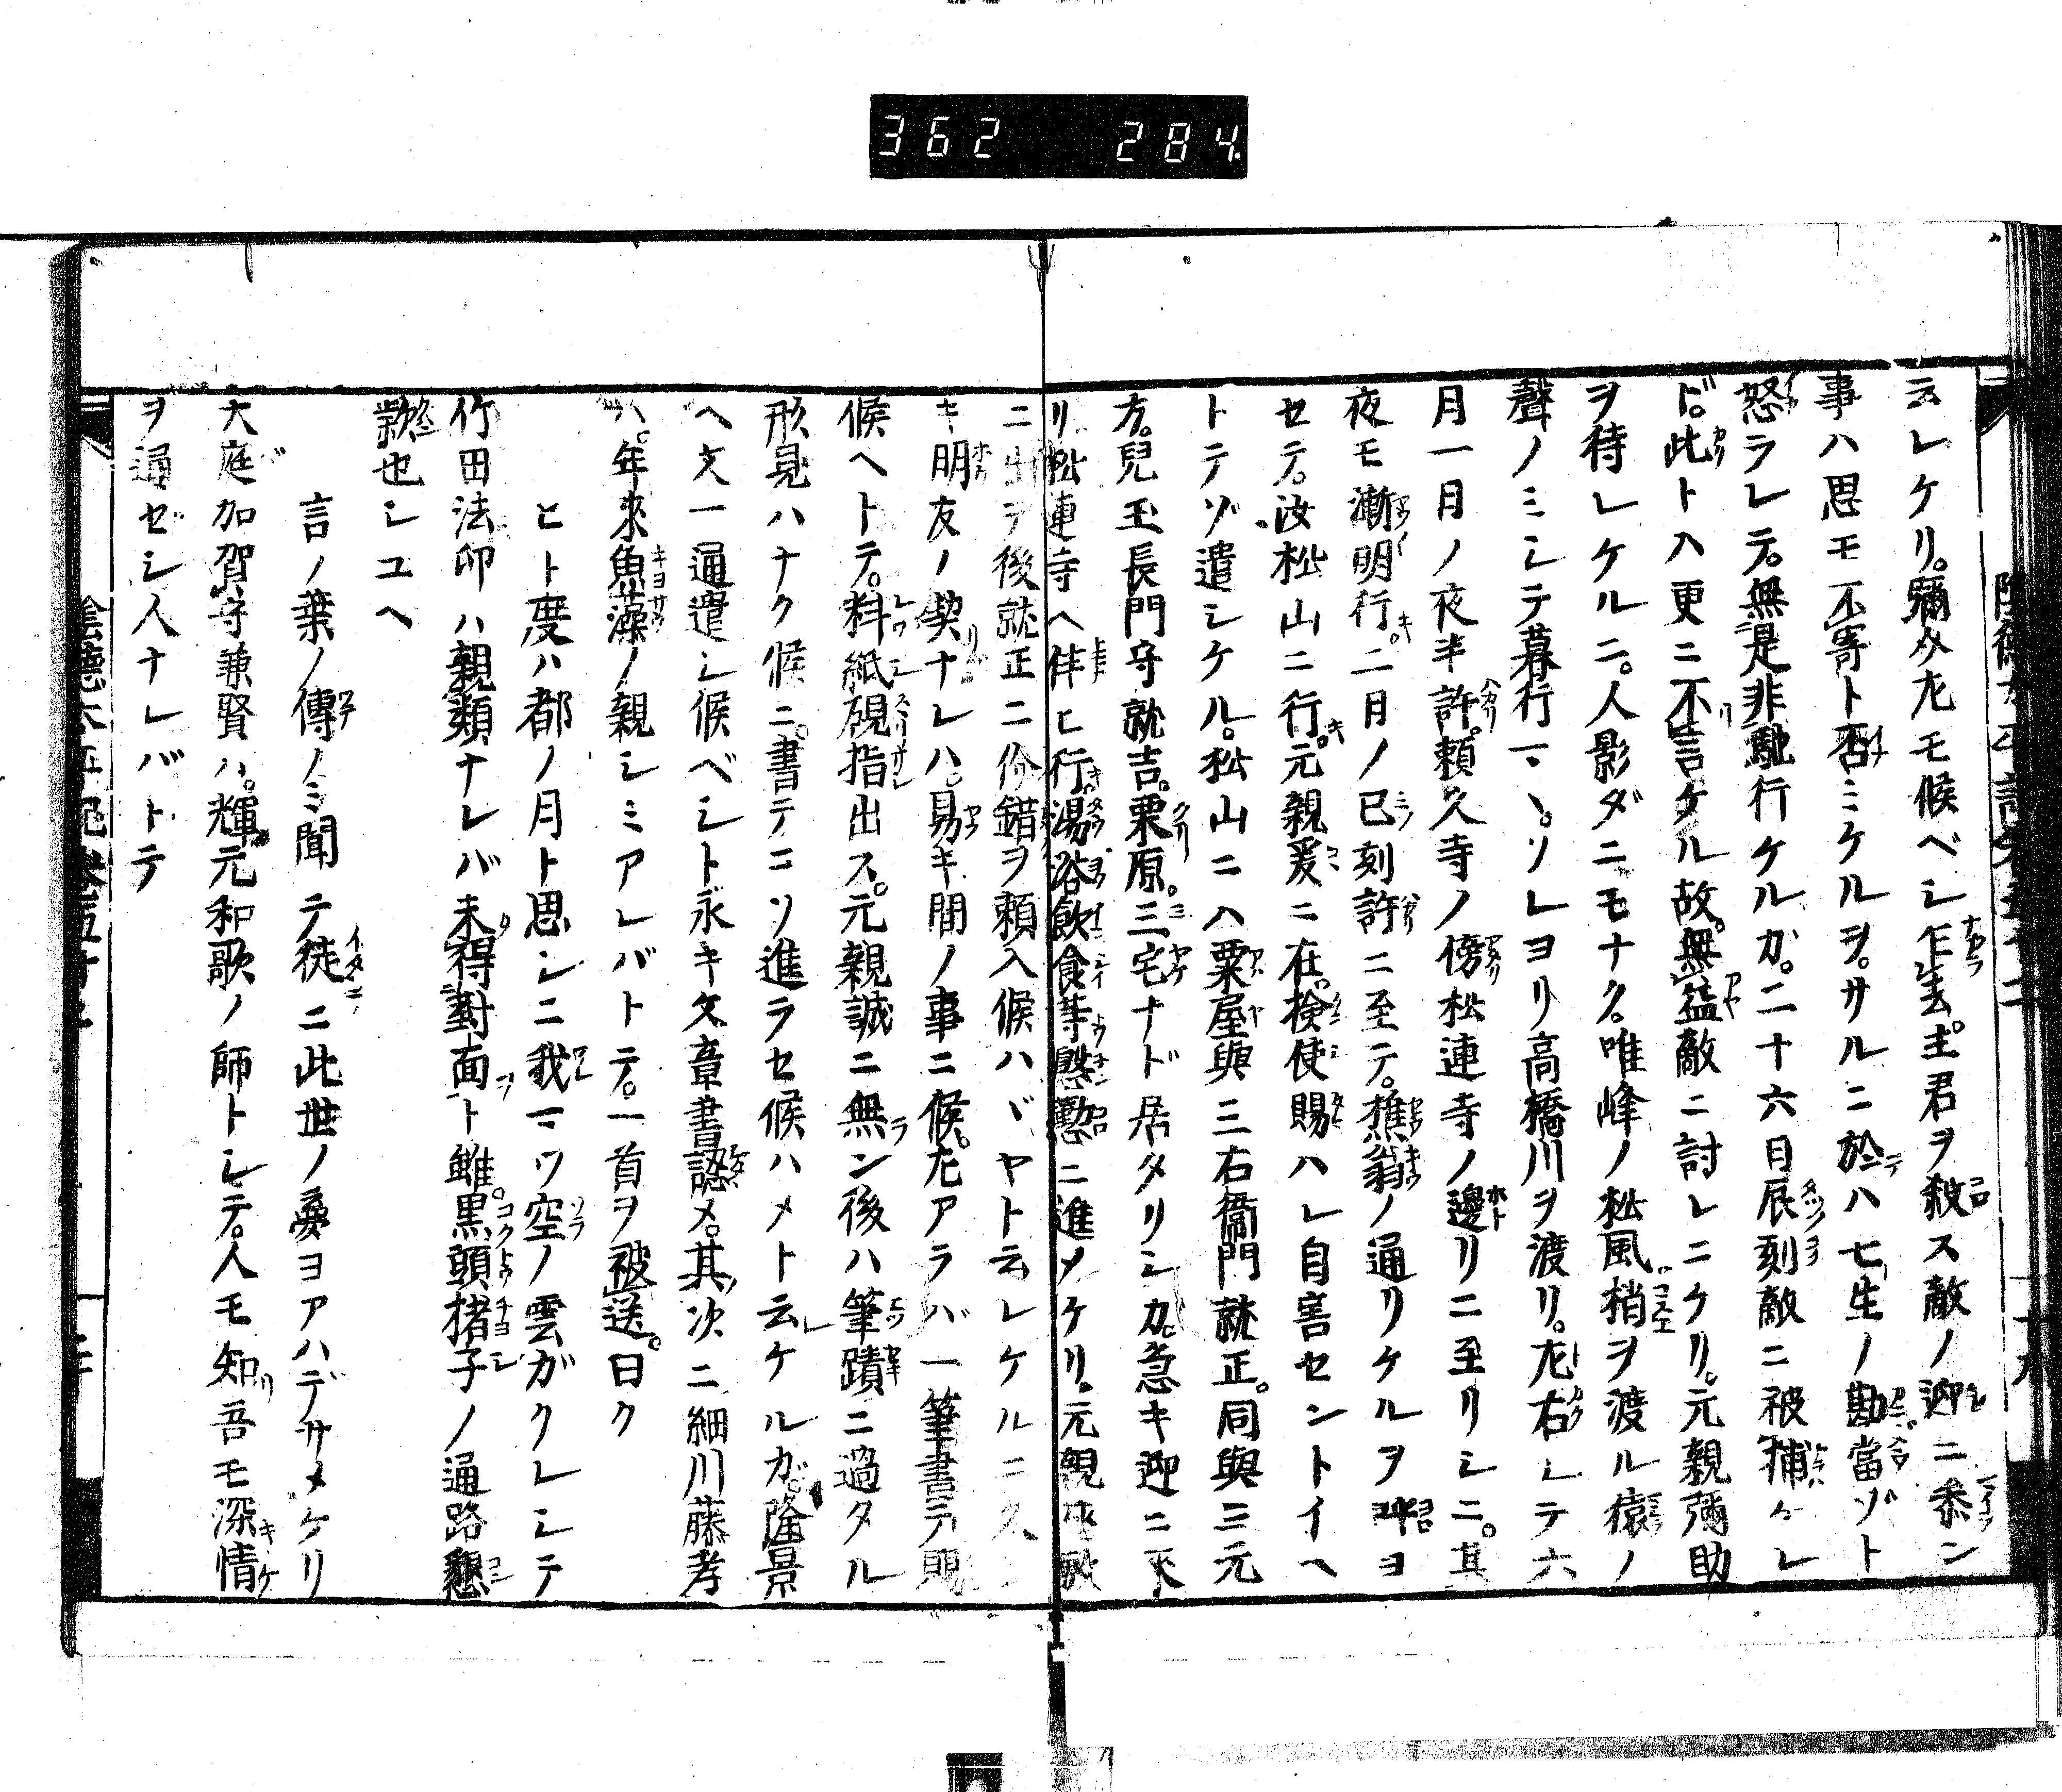 362 284
云レケリ。彌々尤モ候ベシ乍去。主君ヲ殺ス敵ノ迎ニ參ン
事ハ思モ不寄ト否ミケルヲ。サルニ於ハ七生ノ勘當ゾト
怒ラレテ。無是非馳行ケルカ。二十六日辰刻敵ニ被捕ケレ
ド。此トハ更ニ不言ケル故。無益敵ニ討レニケリ。元親彌助
ヲ待レケルニ。人影ダニモナク。唯峰ノ松風梢ヲ渡ル猿ノ
聲ノミシテ暮行マヽ。ソレヨリ高橋川ヲ渡リ。左右シテ六
月一日ノ夜半許。頼久寺ノ傍松連寺ノ邊リニ至リシニ。其
夜モ漸明行。二日ノ巳刻許ニ至テ。樵翁ノ通リケルヲ呼ヨ
セテ。汝松山ニ行。元親爰ニ在。検使賜ハレ自害セントイヘ
トテゾ遣シケル。松山ニハ粟屋與三右衞門就正。同與三元
方。兒玉長門守就吉。栗原。三宅ナド居タリシカ。急キ迎ニ來
リ松連寺ヘ伴ヒ行。湯浴飲食等慇懃ニ進メケリ。元親座敷
ニ出ラ後就正ニ介錯ヲ頼入候ハヾヤト云レケルニ
キ明友ノ契ナレハ。易キ間ノ事ニ候。尤アラバ一筆書テ賜
候ヘトテ。料紙硯指出ス。元親誠ニ無ン後ハ筆蹟ニ過タル
形見ハナク候ニ。書テコソ進ラセ候ハメト云ケルガ。隆景
ヘ文一通遣シ候ベシト永キ文章書認メ。其次ニ細川藤孝
ハ。年來魚藻ノ親シミアレバトテ。一首ヲ被送。曰ク
ヒト度ハ都ノ月ト思シニ我マツ空ノ雲ガクレシテ
竹田法印ハ親類ナレバ未得對面ト雖。黒頭楮子ノ通路懇
款也シユヘ
言ノ葉ノ傳ノミ聞テ徒ニ此世ノ夢ヨアハデサメケリ
大庭加賀守兼賢ハ。輝元和歌ノ師トシテ。人モ知吾モ深情
ヲ通ゼシ人ナレバトテ